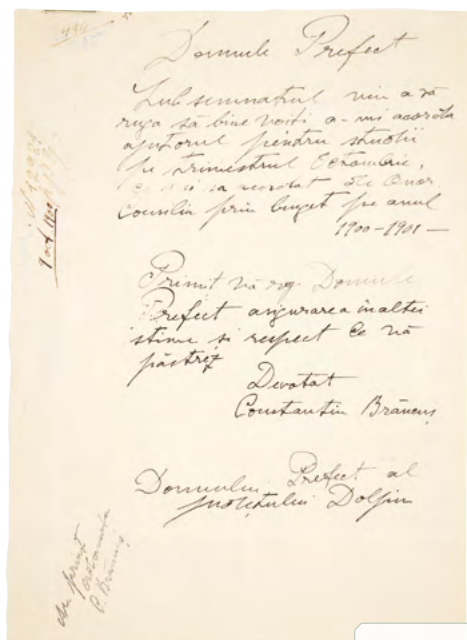 Domnule Prefect
Subsemnatul vin a vă
ruga să bine voiți a-mi acorda
ajutorul pentru studii
pe trimestrul Octombrie,
ce mi sa acordat de Onor.
consiliu prin buget pe anul
1900-1901 —
Primiț vă rog Domnule
Prefect asigurarea înaltei
stime și respect ce vă
păstrez
Devotat
Constantin Brâncuș
Domnului Prefect al
județului Doljiu
Am primit
C. Brâncuș